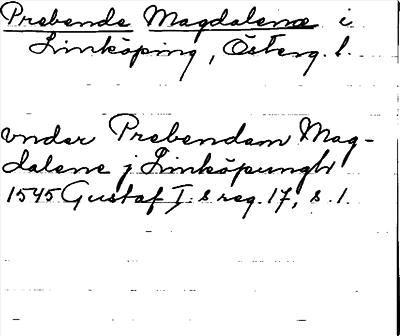 Prebende Magdalene i
Linköping, Österg. l.
vnder Prebendam Mag-
dalene j Linköpungh
1545 Gustaf I. s reg. 17, s. 1.